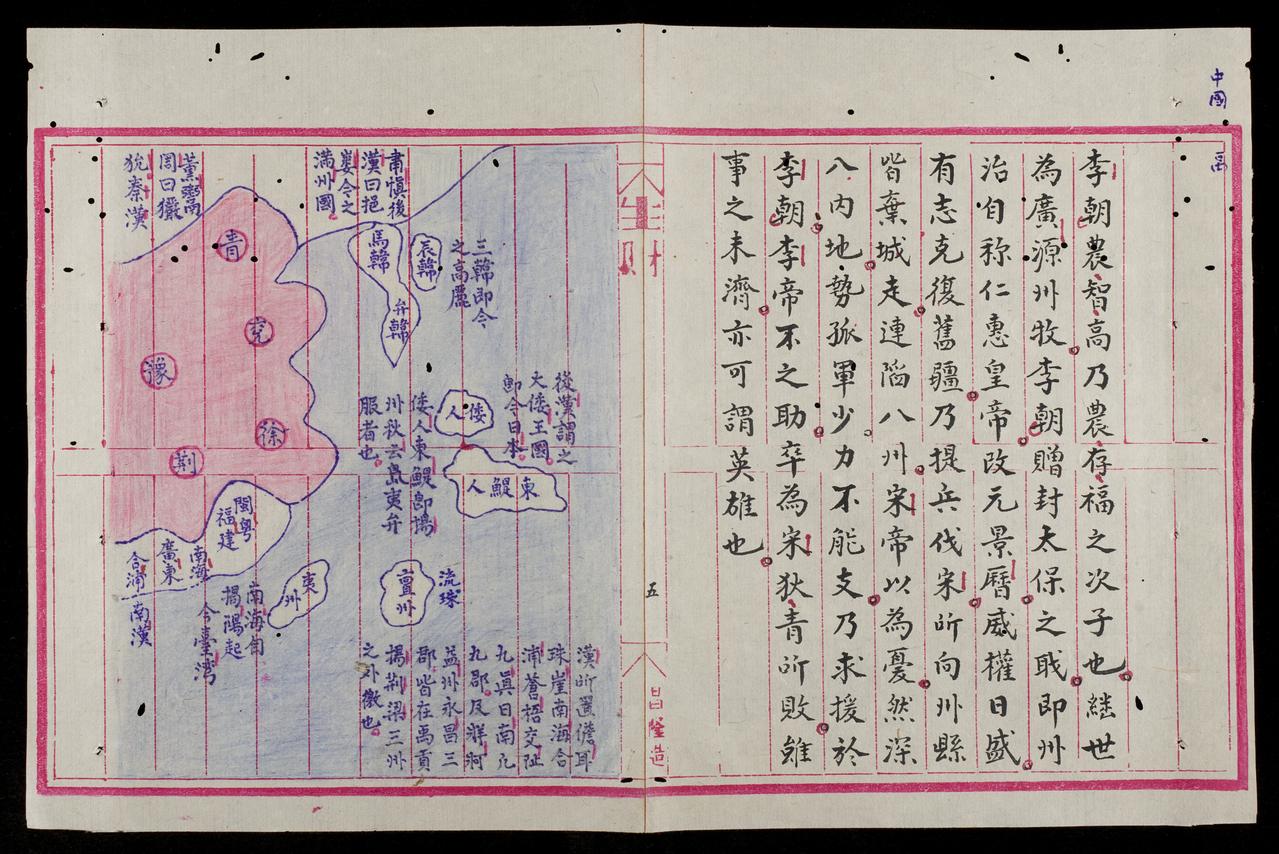 中國
禹
李朝農智高乃農存福之次子也継世
為廣源州牧李朝贈封太保之職即州
治自称仁惠皇帝改元景曆威權日盛
有志克復舊疆乃提兵伐宋所向州縣
皆棄城走連陷八州宋帝以為憂然深
入内地勢孤軍少力不能支乃求援於
李朝李帝不之助卒為宋狄青所敗雖
事之未濟亦可謂英雄也
五
昌隆造
後漢謂之
大倭王國
即今日本
三韓即今
之高麗
辰韓
馬韓
弁韓
肅慎後
漢曰挹
婁今之
滿州國
薰鬻
周曰玁
狁秦漢
青
兗
豫
徐
荆
倭人
東鯷人
倭人東鯷即揚
州秋云島夷弁
服者也
閩粤
福建
南海
廣東
合浦
南漢
夷州
亶州
流球
南海自
揭陽起
今臺湾
漢所置儋耳
珠崖南海合
浦蒼梧交趾
九真日南九
九郡及牂牁
益州永昌三
郡皆在禹貢
揚荆梁三州
之外徼也